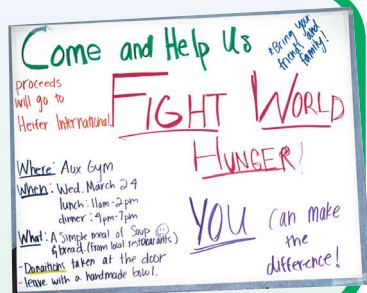 Come and Help Us
*Bring your
friends and
family!
proceeds
will go to
Heifer International
FIGHT WORLD
HUNGER!
Where: Aux Gym
When: Wed. March 24
lunch: 11am-2pm
dinner: 4pm-7pm
What: A Simple meal of Soup
& bread. (from local restaurants)
- Donations taken at the door
- leave with a handmade bowl.
YOU can make
the
difference!